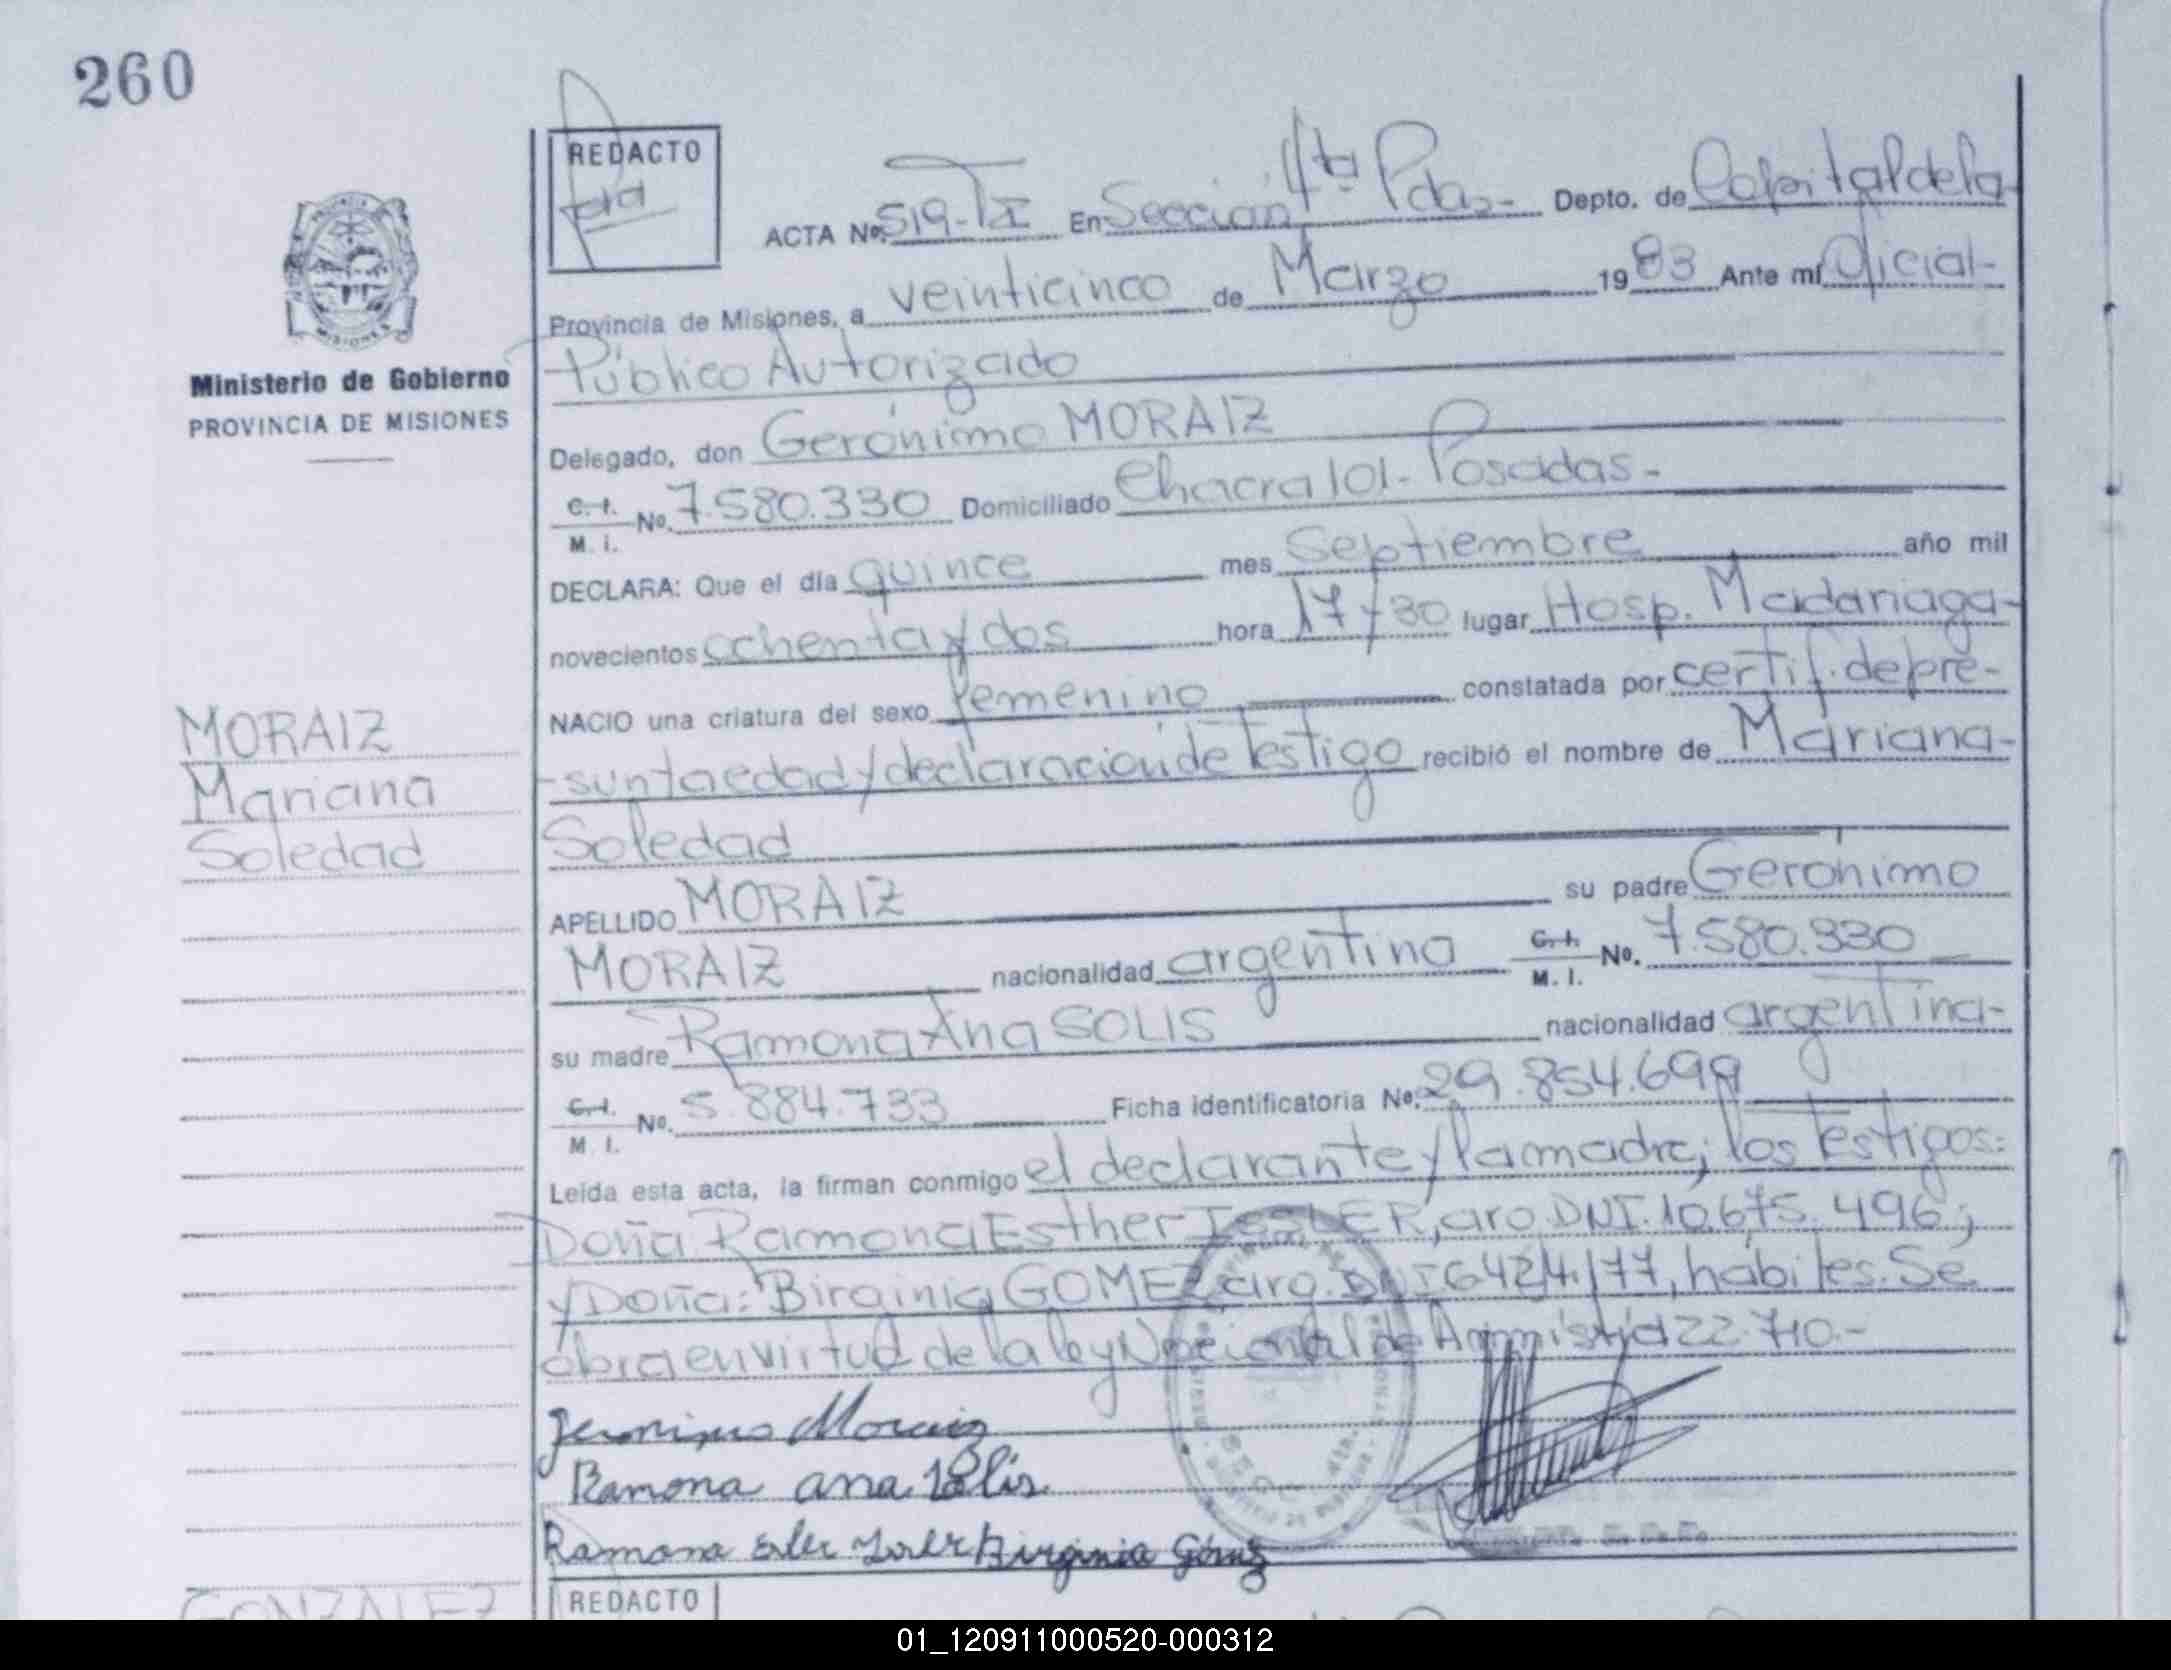 260
REDACTO
ACTA Nº. 519-TI En Sección 4ta Pdas.- Depto. de Capital de la
Provincia de Misiones, a veinticinco de Marzo 1983 Ante mí Oficial-
Ministerio de Gobierno
PROVINCIA DE MISIONES
Público Autorizado
Delegado, don Gerónimo MORAIZ
C. I. M. I. No. 7.580.330 Domiciliado Chacra 101- Posadas-
DECLARA: Que el día quince mes Septiembre año mil
novecientos ochenta y dos hora 17/30 lugar Hosp. Madariaga-
NACIO una criatura del sexo femenino constatada por certif. de pre-
-sunta edad y declaración de Testigo recibió el nombre de Mariana-
Soledad
MORAIZ
Mariana
Soledad
APELLIDO MORAIZ su padre Gerónimo
MORAIZ nacionalidad argentina C. I. M. I. Nº. 7.580.330
su madre Ramona Ana SOLIS nacionalidad argentina-
C. I. M. I. Nº. 5.884.733 Ficha identificatoria Nº. 29.854.699
Leída esta acta, la firman conmigo el declarante y la madre; los Testigos:
Doña Ramona Esther ISSLER, arg. DNI. 10.675.496;
y Doña: Birginia GOMEZ arg. DNI 6424.177, hábiles. Se
obra en virtud de la ley Nacional de Ammistía 22.710.-
Jeronimo Moraiz
Ramona ana Solis
Ramona Birginia Gómez
GONZALEZ
REDACTO
01_120911000520-000312